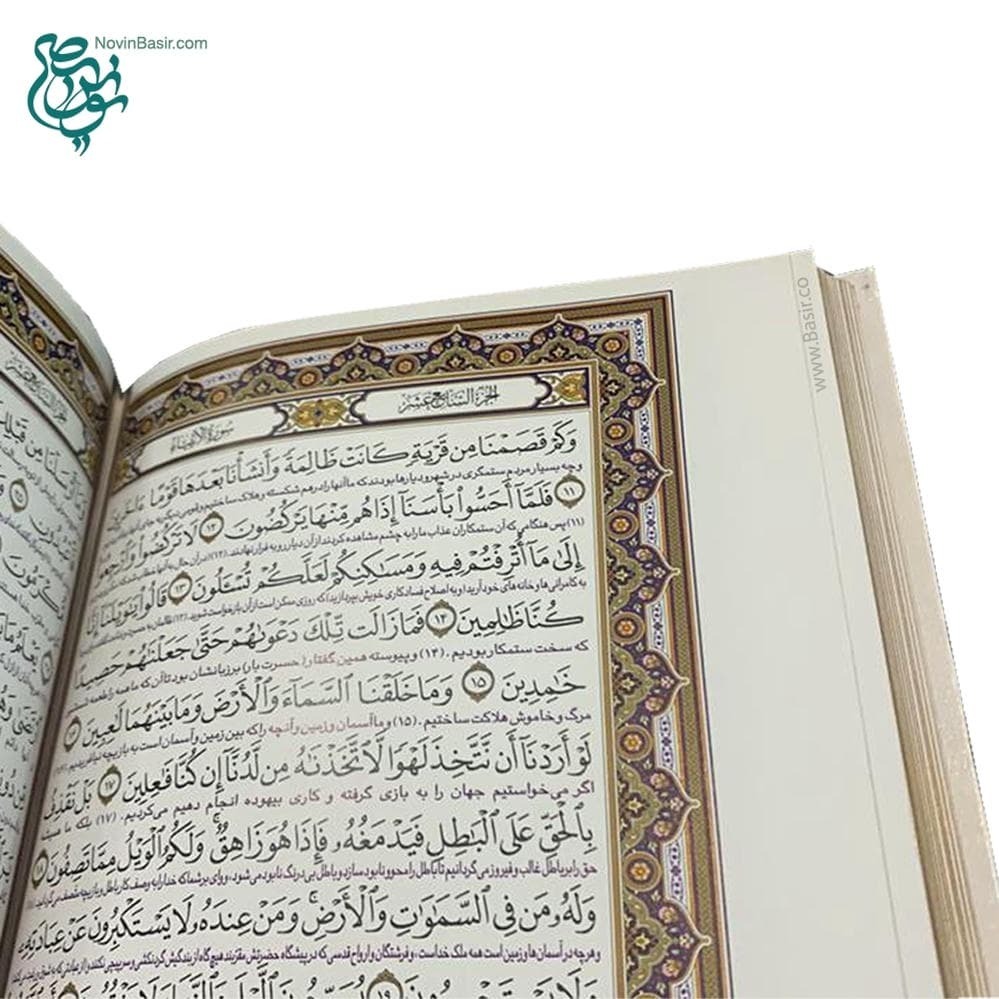 NovinBasir.com
www.Basir.co
الجزء السابع عشر
سورة الأنبياء
وَكَمْ قَصَمْنَا مِن قَرْيَةٍ كَانَتْ ظَالِمَةً وَأَنشَأْنَا بَعْدَهَا قَوْمًا ءَاخَرِينَ
وچه بسیار مردم ستمگری در شهر و دیارها بودند که ما آنها را درهم شکسته و هلاک ساختیم و قومی دیگر به جای
۱۱ فَلَمَّا أَحَسُّوا۟ بَأْسَنَا إِذَا هُم مِّنْهَا يَرْكُضُونَ ۱۲ لَا تَرْكُضُوا۟ وَٱرْجِعُوٓا۟
(۱۱) پس هنگامی که آن ستمکاران عذاب ما را به چشم مشاهده کردند از آن دیار رو به فرار نهادند. (۱۲) در آن حال به آنها خطاب شد که
إِلَىٰ مَآ أُتْرِفْتُمْ فِيهِ وَمَسَـٰكِنِكُمْ لَعَلَّكُمْ تُسْـَٔلُونَ ۱۳ قَالُوا۟ يَـٰوَيْلَنَآ إِنَّا
به کامرانی‌ها و خانه‌های خود آرید (و به اصلاح فسادکاری خویش بپردازید) که روزی ممکن است از آن بازخواست شوید. (۱۳) ظالمان
كُنَّا ظَـٰلِمِينَ ۱۴ فَمَا زَالَت تِّلْكَ دَعْوَىٰهُمْ حَتَّىٰ جَعَلْنَـٰهُمْ حَصِيدًا
که سخت ستمکار بودیم. (۱۴) و پیوسته همین گفتار (حسرت بار) بر زبانشان بود تا آن که ما همه را طعمه
خَـٰمِدِينَ ۱۵ وَمَا خَلَقْنَا ٱلسَّمَآءَ وَٱلْأَرْضَ وَمَا بَيْنَهُمَا لَـٰعِبِينَ ۱۶
مرگ و خاموش هلاکت ساختیم. (۱۵) و ما آسمان و زمین و آنچه را که بین زمین و آسمان است به بازیچه نیافریدیم. (۱۶)
لَوْ أَرَدْنَآ أَن نَّتَّخِذَ لَهْوًا لَّٱتَّخَذْنَـٰهُ مِن لَّدُنَّآ إِن كُنَّا فَـٰعِلِينَ ۱۷ بَلْ نَقْذِفُ
اگر می‌خواستیم جهان را به بازی گرفته و کاری بیهوده انجام دهیم می‌کردیم. (۱۷) بلکه ما همیشه
بِٱلْحَقِّ عَلَى ٱلْبَـٰطِلِ فَيَدْمَغُهُۥ فَإِذَا هُوَ زَاهِقٌ ۚ وَلَكُمُ ٱلْوَيْلُ مِمَّا تَصِفُونَ ۱۸
حق را بر باطل غالب و فیروز می‌گردانیم تا باطل را محو و نابود سازد و باطل بی‌درنگ نابود می‌شود، و وای بر شما که خدا را به وصف کار باطل و بازیچه متصف می‌گردانید
وَلَهُۥ مَن فِى ٱلسَّمَـٰوَٰتِ وَٱلْأَرْضِ ۚ وَمَنْ عِندَهُۥ لَا يَسْتَكْبِرُونَ عَنْ عِبَادَتِهِۦ
و هر چه در آسمان‌ها و زمین است همه ملک خداست، و فرشتگان و ارواح قدسی که در پیشگاه حضرتش مقربند هیچ‌گاه از بندگیش گردنکشی و سرپیچی نکنند و از عبادتی که
وَلَا يَسْتَحْسِرُونَ ۱۹ يُسَبِّحُونَ ٱلَّيْلَ وَٱلنَّهَارَ لَا يَفْتُرُونَ